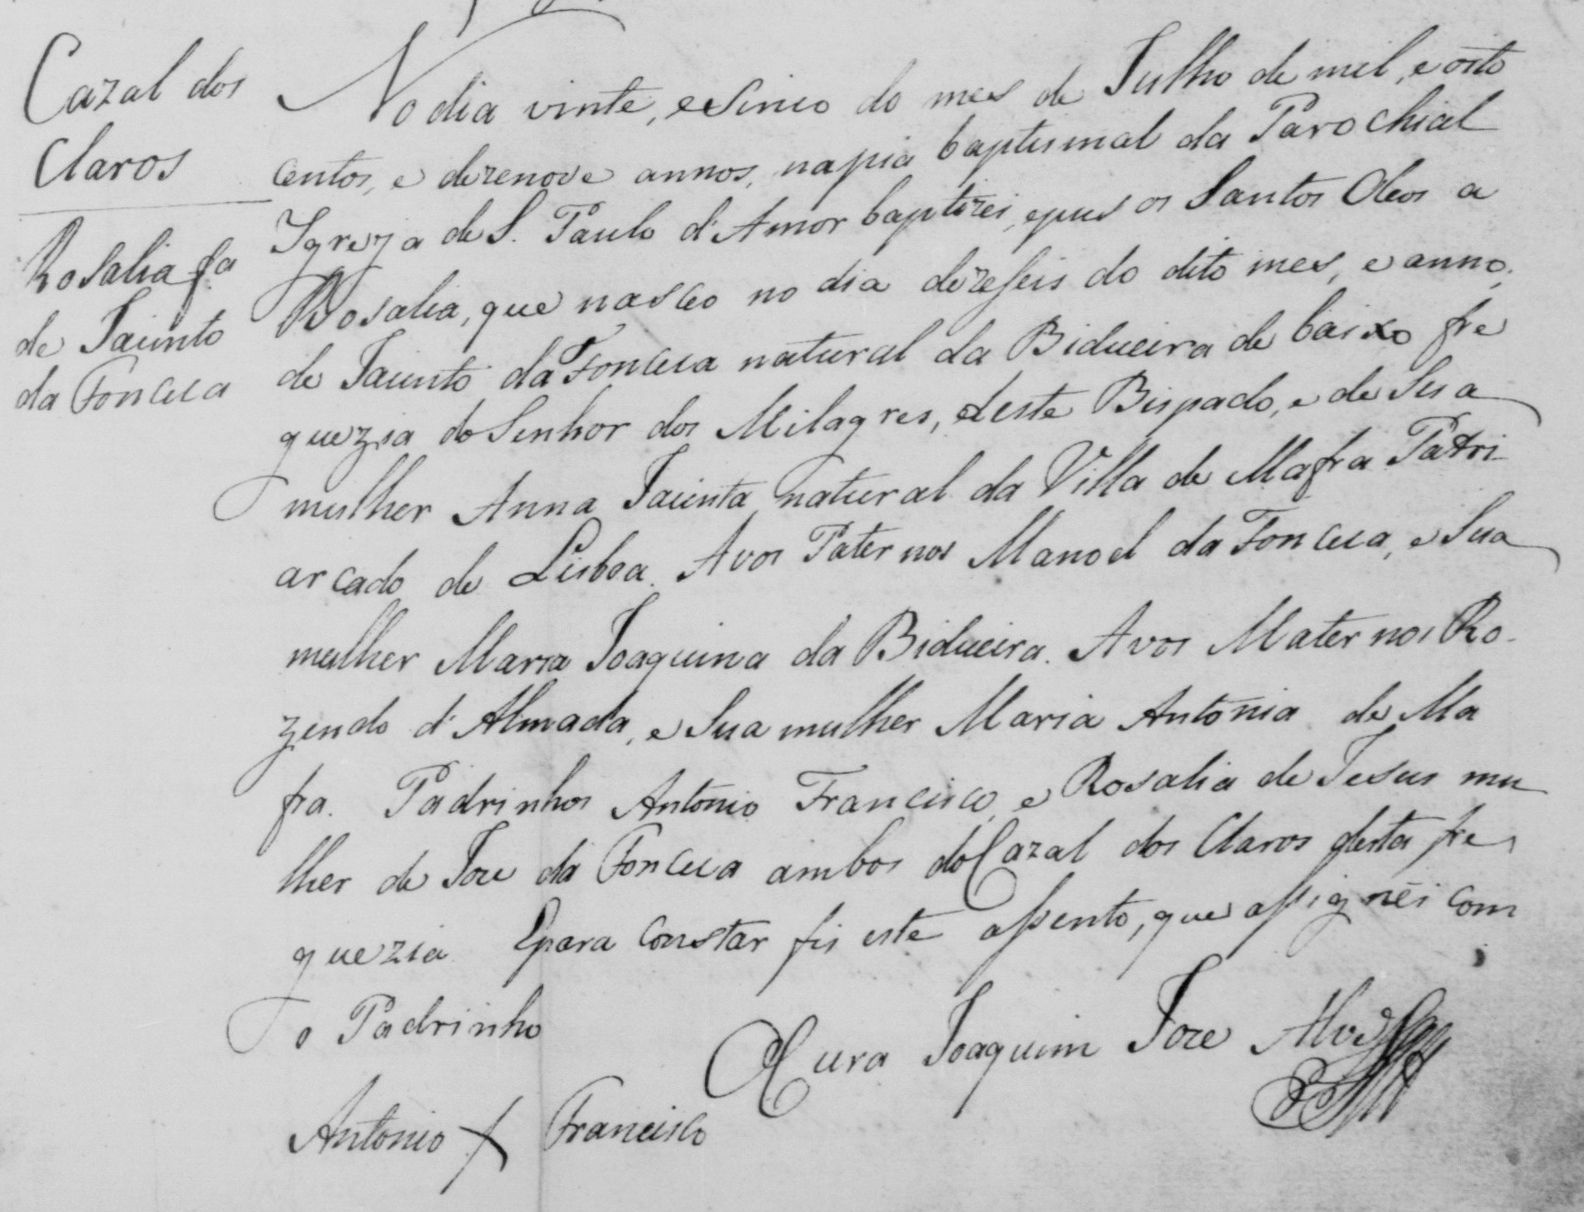 Cazal dos
Claros
Rosalia fa
de Jacinto
da Fonceca
No dia vinte, e sinco do mes de Julho de mil, e oito
centos, e dezenove annos, na pia baptismal da Parochial
Igreja de S. Paulo d'Amor baptizei, e pus os Santos Oleos a
Rosalia, que nasceo no dia dezeseis do dito mes, e anno,
de Jacinto da Fonceca natural da Bidueira de baixo fre
guezia do Senhor dos Milagres, deste Bispado, e de Sua
mulher Anna Jacinta natural da Villa de Mafra Patri
arcado de Lisboa. Avos Paternos Manoel da Fonceca, e Sua
mulher Maria Joaquina da Bidueira. Avos Maternos Ro-
zendo d'Almada, e Sua mulher Maria Antonia de Ma
fra. Padrinhos Antonio Francisco, e Rosalia de Jesus mu
lher de Joze da Fonceca ambos do Cazal dos Claros desta fre
guezia. E para constar fis este assento, que assignei com
o Padrinho
O Cura Joaquim Joze Alves
Antonio + Francisco